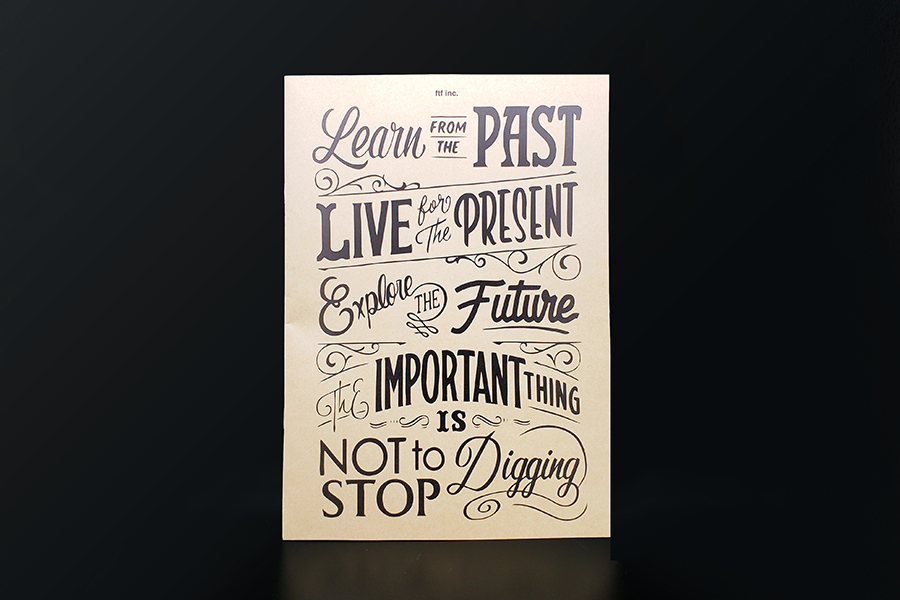 ftf inc.
Learn FROM THE PAST
LIVE for The PRESENT
Explore THE Future
ThE IMPORTANT THING
IS
NOT to Digging
STOP